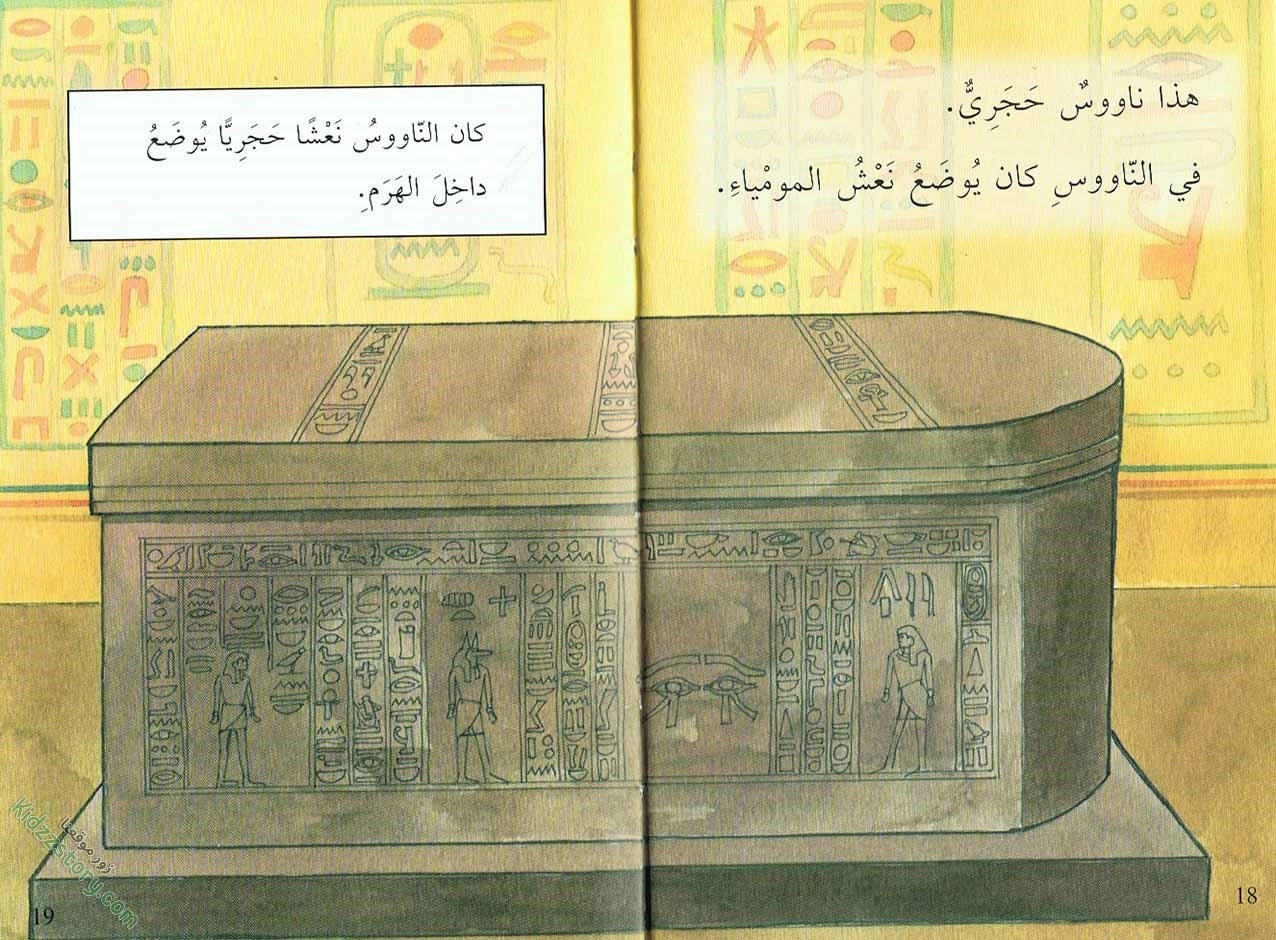 هذا ناووسٌ حَجَرِيٌّ.
في النّاووسِ كان يُوضَعُ نَعْشُ المومْياءِ.
18
كان النّاووسُ نَعْشًا حَجَرِيًّا يُوضَعُ
داخِلَ الهَرَمِ.
زورموقعنا
Kidzzstory.com
19